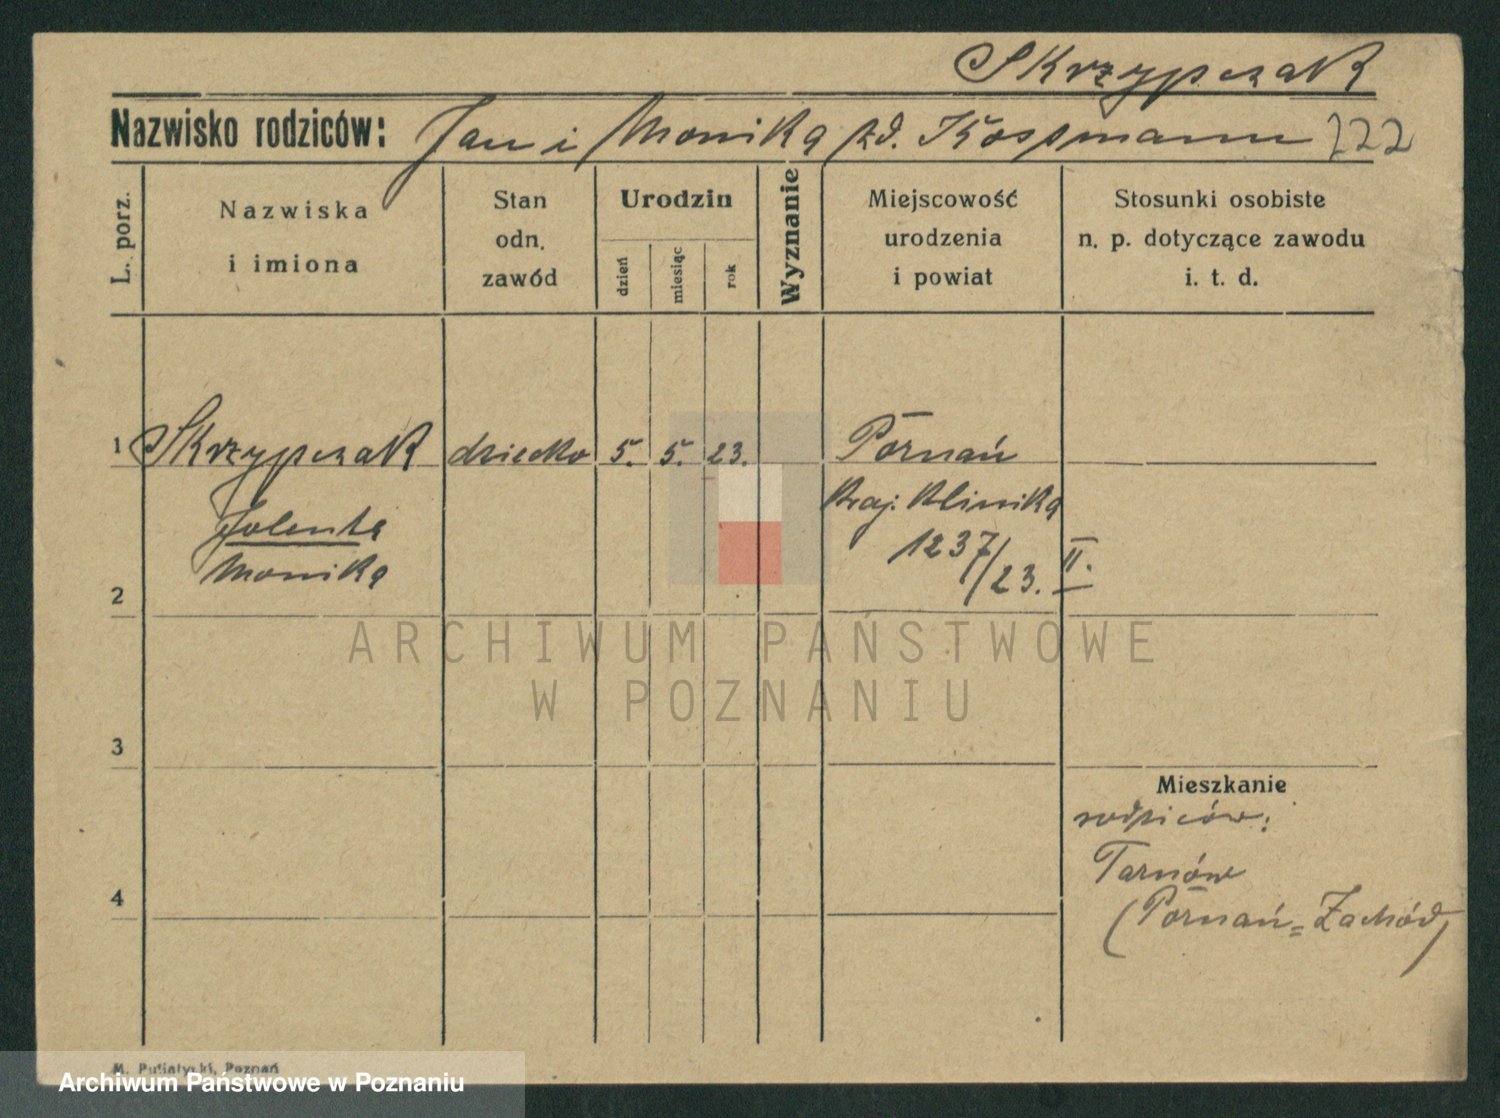 Skrzypczak
Nazwisko rodziców: Jan i Monika zd. Kossmann 222
L. porz.
Nazwiska
i imiona
Stan
odn.
zawód
Urodzin
dzień
miesiąc
rok
Wyznanie
Miejscowość
urodzenia
i powiat
Stosunki osobiste
n. p. dotyczące zawodu
i. t. d.
1 Skrzypczak dziecko 5. 5. 23. Poznań
Kraj. Klinika
Jolenta
1237/23. II.
Monika
2
ARCHIWUM PAŃSTWOWE
W POZNANIU
3
Mieszkanie
rodziców:
Tarnów
4
(Poznań=Zachód)
M. Putiatycki, Poznań
Archiwum Państwowe w Poznaniu